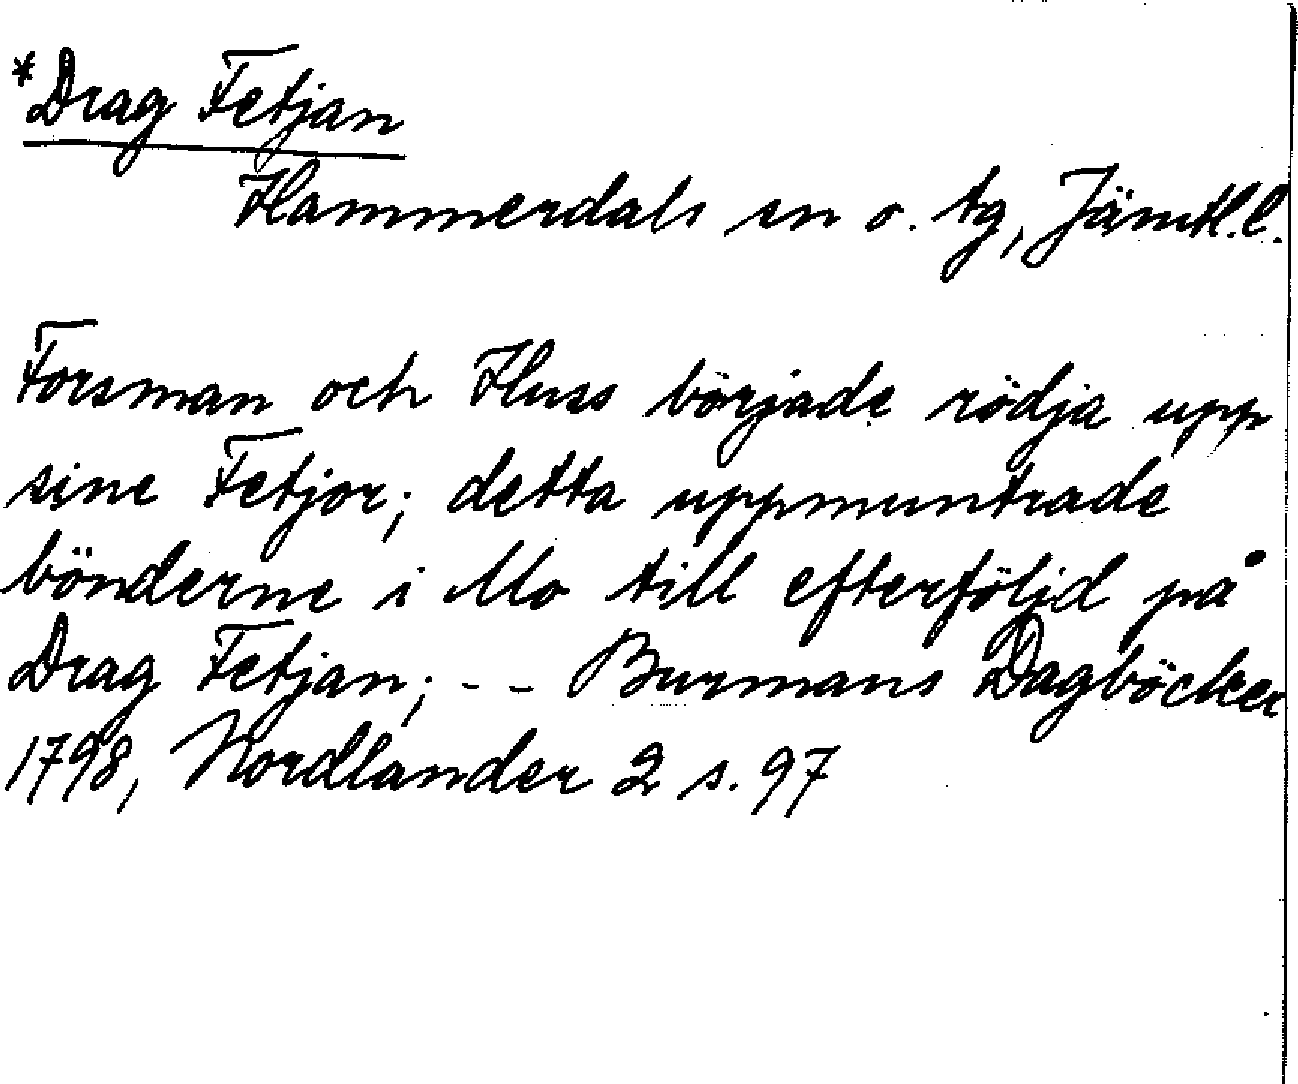 *Drag Fetjan
Hammerdals sn o. tg, Jämtl.l.
Forsman och Huss började rödja upp
sine Fetjor; detta uppmuntrade
bönderne i Mo till efterföljd på
Drag Fetjan; -- Burmans Dagböcker
1798, Nordlander 2 s. 97